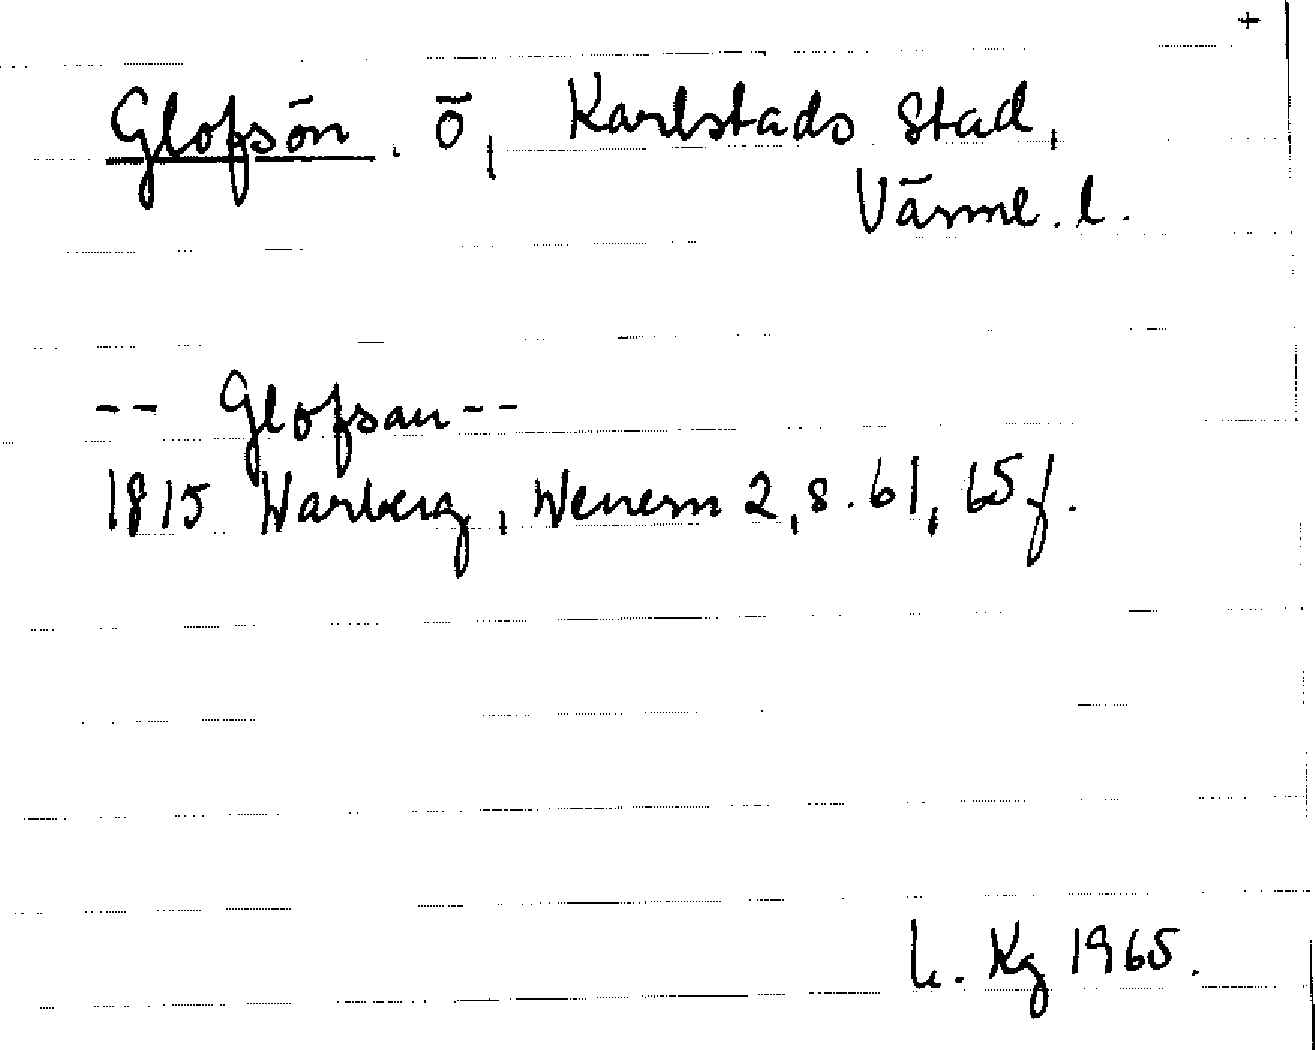 +
Glofsön. ö, Karlstads stad,
Värml. l.
-- Glofsan --
1815 Warberg, Wenern 2, s. 61, 65 f.
Kg 1965.